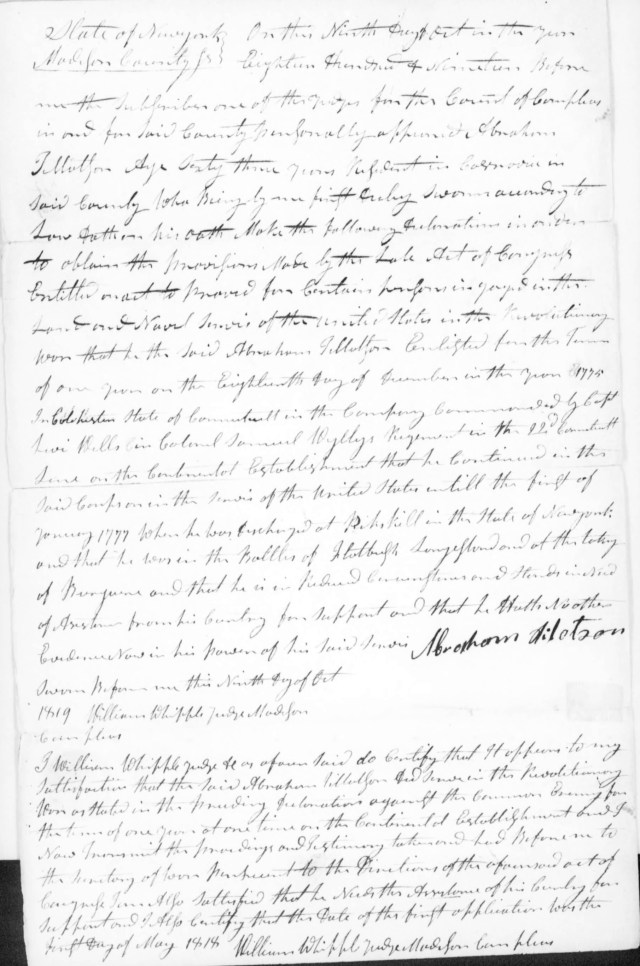 State of Newyork } On this Ninth Day of Oct in the year
Madison County SS } Eighteen Hundred & Nineteen Before
me the Subscriber one of the Judges for the Court of Com pleas
in and for said County personally appeared Abraham
Tillotson Age Sixty three years Resident in Casnovia in
said County Who Being by me first Duley Sworn according to
Law Doth on his oath Make the following Declaration in order
to obtain the provisions Made by the Late Act of Congress
Entitled an act to provid for Certain persons ingaged in the
Land and Navel Servis of the United States in the Revolutionary
war that he the said Abraham Tillotson Enlisted for the Term
of one year on the Eighteenth Day of December in the year 1775
In Colchester State of Connecticutt in the Company Commanded by Capt
Levi Wells in Colonel Samuel Wyllys Regement in the 22d Connecticutt
Line on the Continental Establishment that he Continued in the
said Corps on in the Servis of the United States untill the first of
January 1777 When he was Discharged at Pikskill in the State of Newyork
and that he was in the Battles of Long Island and at the taking
of Burgoyne and that he is in Reduced Circumstances and Stands in Need
of Assistance from his Country for Support and that he Hath No other
Evedence Now in his Power of his Said Servis Abraham Tilotson
Sworn Before me this Ninth Day of Oct
1819 William Whipple Judge Madison
Com pleas
I William Whipple Judge &c as afore said do Certify that It appears to my
Satisfaction that the said Abraham Tillotson Did Serve in the Revolutionary
War as stated in the Preceding Declaration against the Common Enemy for
the term of one year at one time on the Continental Establishment and I
Now Transmit the Proceedings and Testimony taken and had Before me to
the Secretary of War Pursuant to the Directions of the aforesaid act of
Congress I am Also Satisfied that he Needs the Assistance of his Country for
Support and I Also Certify that the Date of the first application was the
First Day of May 1818 William Whipple Judge Madison Com pleas